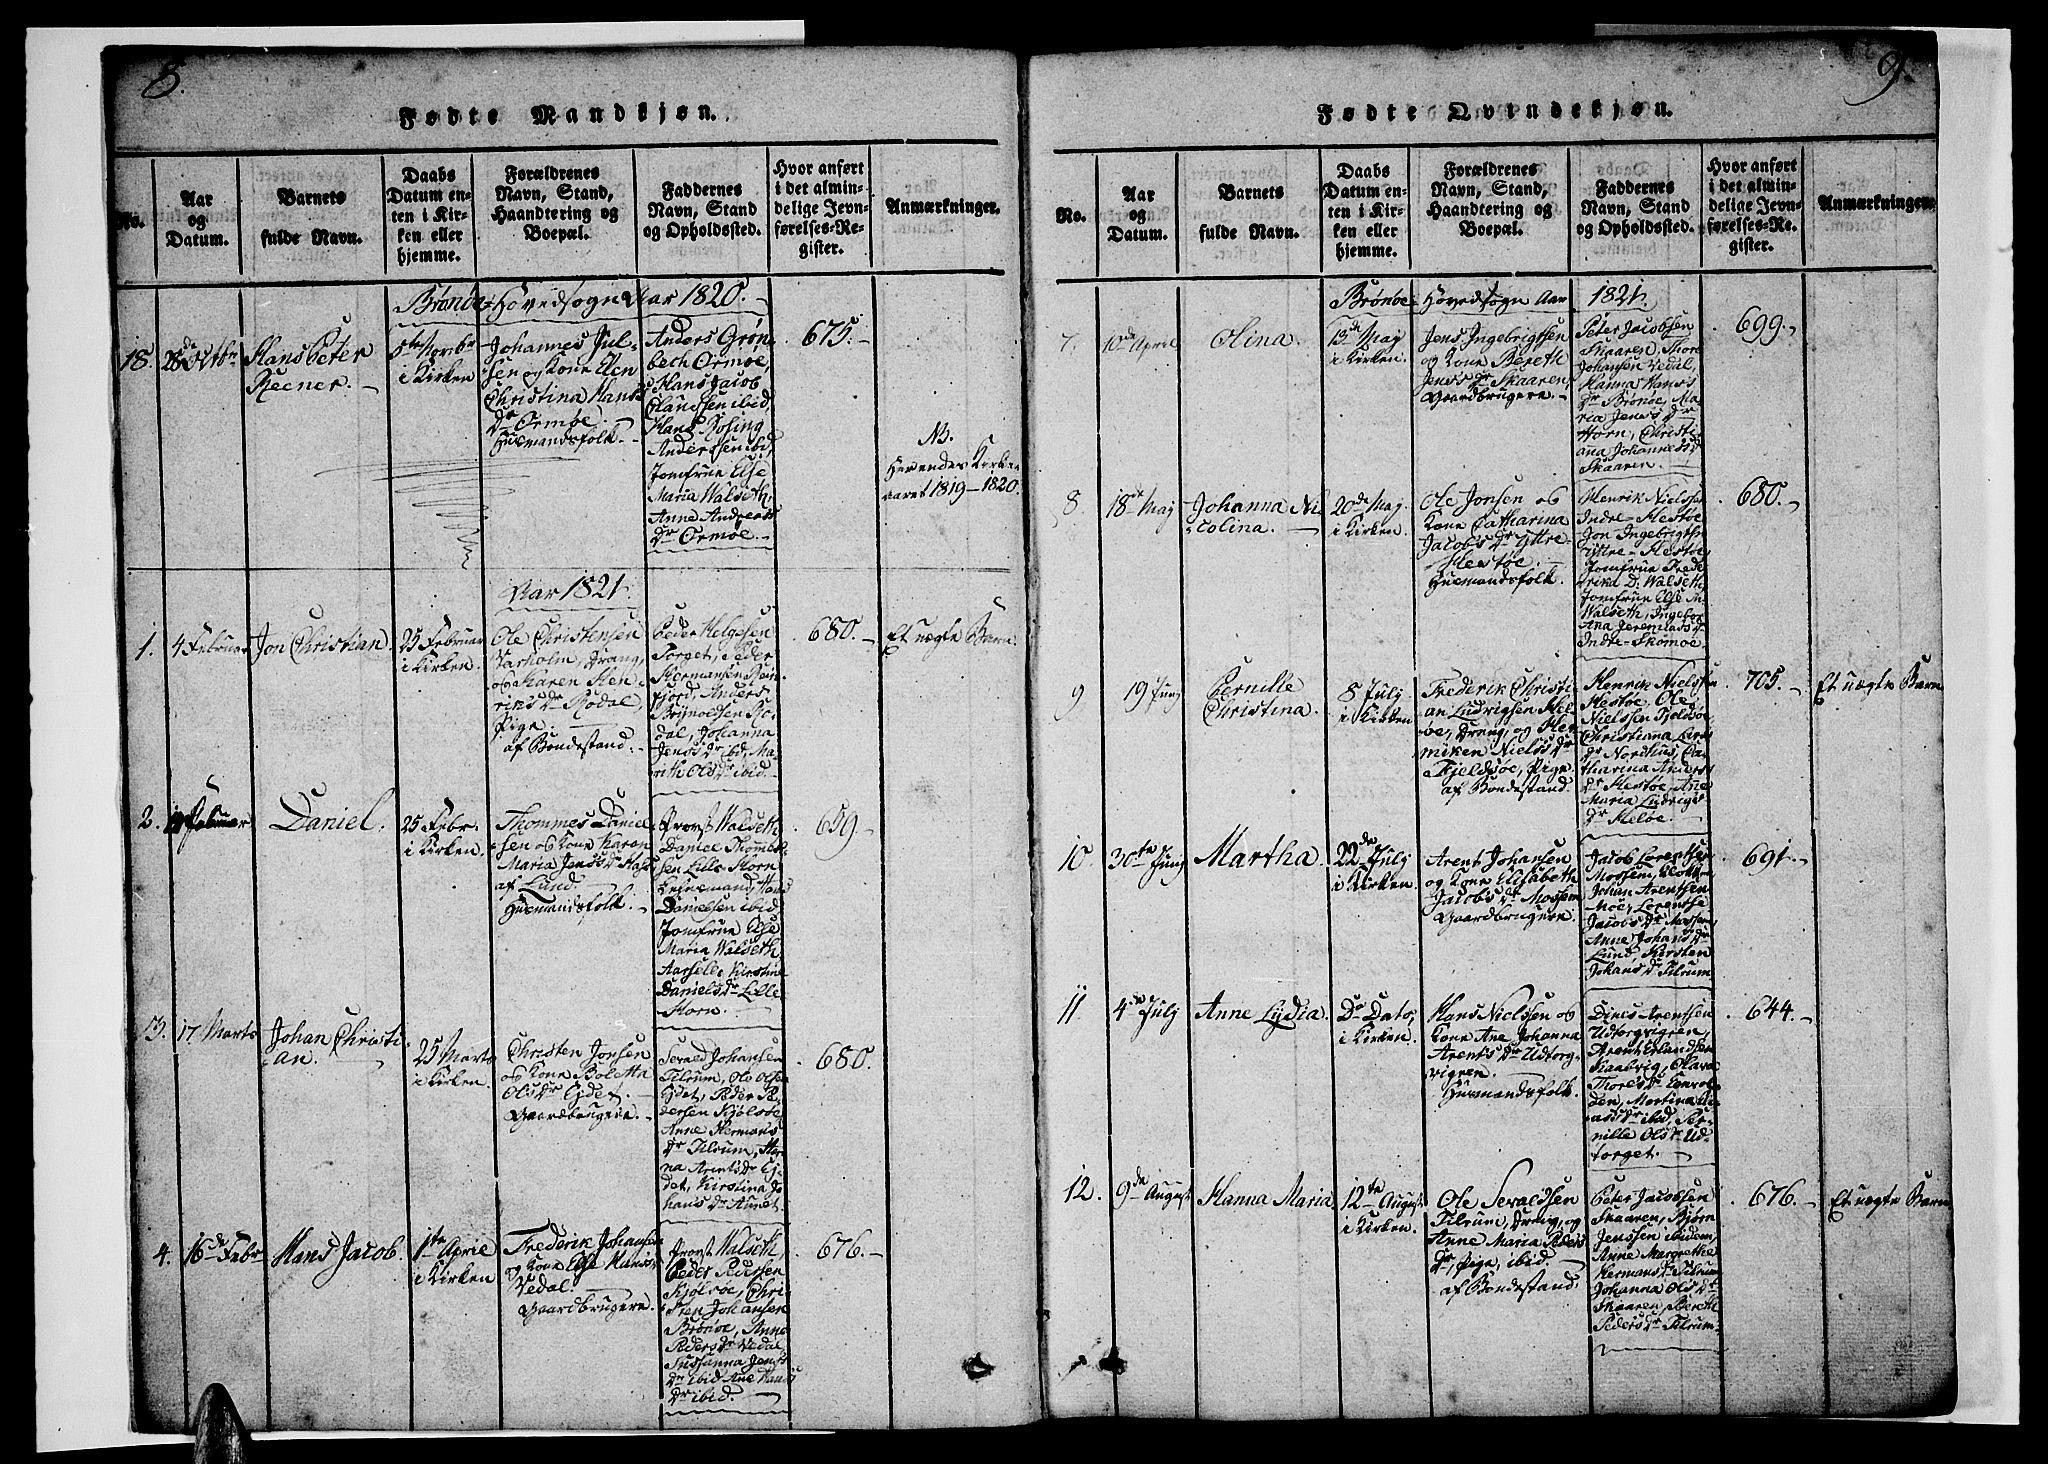 8.
Fødte Mandkjøn.
No.
Aar
og
Datum.
Barnets
fulde Navn.
Daabs
Datum en-
ten i Kir-
ken eller
hjemme.
Forældrenes
Navn, Stand,
Haandtering og
Boepæl.
Faddernes
Navn, Stand
og Opholdssted.
Hvor anført
i det almin-
delige Jevn-
førelses-Re-
gister.
Anmærkninger.
Brønøe Hovedsogn Aar 1820.
18.
28de Octbr
Hans Peter
Reener.
5te Novbr
i Kirken
Johannes Jul-
sen og Kone Elen
Christina Hans
Dr Ormøe.
Huusmandsfolk.
Anders Grøn-
bech Ormøe,
Hans Jacob
Clausen ibid,
Hans Rosing
Andersen ibd,
Jomfrue Else
Maria Walseth,
Anne Andreas
Dr Ormøe.
675.
NB.
Her endes Kirke-
aaret 1819-1820.
Aar 1821.
1.
4 Februar
Jon Christian.
25 Februar
i Kirken.
Ole Christensen
Varholm, Dreng,
og Karen Hen-
riks Dr Rødal,
Pige.
af Bondestand.
Peder Helgesen
Torget, Peder
Hermansen
fjord, Anders
Brynoldsen Rø-
dal, Johanna
Jens Dr ibd, Ma-
rith Ols Dr ibid.
680.
Et uægte Barn.
2.
Februar
Daniel.
25 Febr.
i Kirken.
Thommes Daniel-
sen og Kone Karen
Maria Jens Dr
af Lund.
Huusmandsfolk.
Provst Walseth
Daniel Thomes-
sen Lille-Horn
Hans
Danielsen ibid
Jomfrue Else
Maria Walseth
Aarsell, Kirstine
Daniels Dr Lille
Horn.
659.
3.
17 Marts
Johan Christi
an.
25 Marts
i Kirken.
Christen Jonsen
og Kone Boletta
Ols Dr Eydet.
Gaardbrugere.
Sevald Johansen
Tilrum, Ole Olsen
Eydet, Peder Pe-
dersen Kjølsøe
Anne Hermans
Dr Tilrum,
Arents Dr Ey-
det, Kirstina Jo-
hans Dr
680.
4.
16de Febr
Hans Jacob.
1te April
i Kirken
Frederik Johansen
og Kone Else Hans
Vedal.
Gaardbrugere.
Provst Walseth
Peder Pedersen
Kjølsøe, Chri-
sten Johansen
Brønøe, Anne
Peders Dr Vedal
Susanna Jens
Dr ibid Ane Hans
Dr ibid.
676.
9.
Fødte Qvindekjøn.
No.
Aar
og
Datum.
Barnets
fulde Navn.
Daabs
Datum en-
ten i Kir-
ken eller
hjemme.
Forældrenes
Navn, Stand,
Haandtering og
Boepæl.
Faddernes
Navn, Stand
og Opholdssted.
Hvor anført
i det almin-
delige Jevn-
førelses-Re-
gister.
Anmærkninger.
Brønøe Hovedsogn Aar 1821.
7.
10de April
Olina.
13de Maj
i Kirken.
Jens Ingebrigtsen
og Kone Bereth
Jens Dr Skaaren,
Gaardbrugere.
Peter Jacobsen
Skaaren, Thore
Johansen Vedal,
Hanna Hans
Dr Brønøe, Ma
ria Jens Dr
Horn, Christi
ana Johannes Dr
Skaaren.
699.
8.
18de Maj
Johanna Ni
colina.
20de Maj
i Kirken.
Ole Jonsen og
Kone Catharina
Jacobs Dr Yttre-
Hestøe.
Huusmandsfolk.
Henrik Nielssen
Indre-Hestøe
Jon Ingebrigtsen
Yttre-Hestøe,
Jomfrue Frede
rika D. Walseth
Jomfrue Else M.
Walseth, Ingebor
Ana Jeremias Dr
Indre-Skomøe.
680.
9
19 Junj
Pernille
Christina.
8 Julj
i Kirken
Frederik Christi-
an Ludvigsen Hel-
øe, Dreng, og Hen-
miken Niels Dr
Fjeldsøe, Pige
af Bondestand.
Henrik Nielssen
Hestøe, Ole
Nielssen Fjeldsøe,
Christiana Lars
Dr Nordhuus, Ca-
tharina Anders
Dr Hestøe, Ane
Maria Ludvigs
Dr Heløe.
705.
Et uægte Barn
10.
30te Junj
Martha.
22de Julj
i Kirken.
Arent Johansen
og Kone Elisabeth
Jacobs Dr Mossem
Gaardbrugere.
Jacob Lorentsen
Mossem,
Johan Arentsen
Moe, Lorentse
Jacobs Dr Mossem
Anne Johans Dr
Lund, Kirsten
Johans Dr Tilrum
691.
11.
4de Julj
Anne Lydia.
Do Dato,
i Kirken.
Hans Nielssen og
Kone Ane Johanna
Arents Dr Udtorg-
vigen.
Huusmandsfolk.
Dines Arentsen
Udtorgvigen,
Arent Erlandsen
Skaalvig, Olava
Thores Dr
den, Martina
Dr ibid, Per-
nille Ols Dr Ud-
torget.
644.
12.
9de August
Hanna Maria
12te August
i Kirken.
Ole Sevaldsen
Tilrum, Dreng, og
Anne Maria Peders
Dr, Pige, ibid.
af Bondestand.
Peter Jacobsen
Skaaren, Bjørn
Jenssen ibidem,
Anne Margrethe
Hermans Dr Tilrum,
Johanna Ols Dr
Skaaren, Bereth
Peders Dr Tilrum.
676.
Et uægte Barn